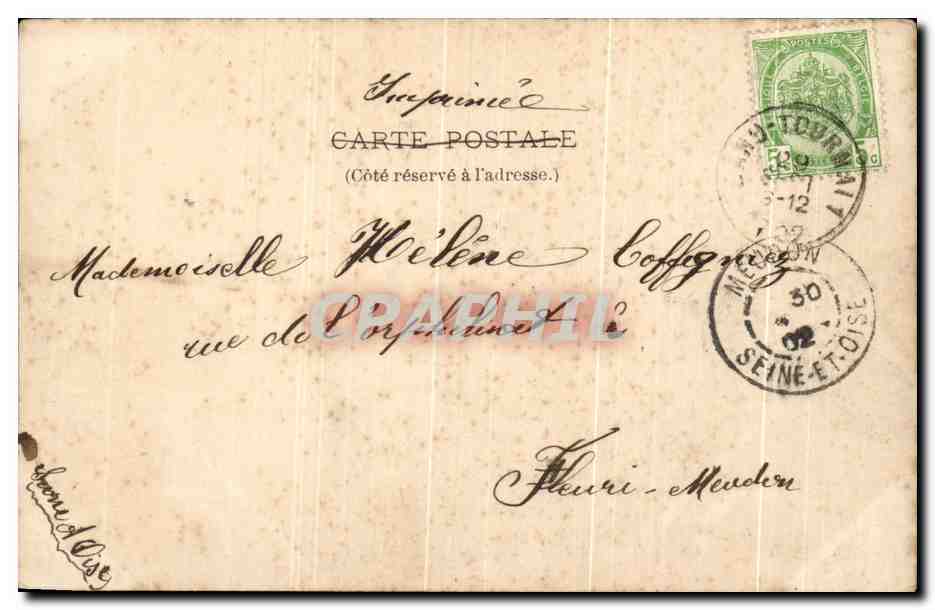 Imprimé
CARTE POSTALE
(Côté réservé à l'adresse.)
Mademoiselle Hélène Coffigniez
rue de l'orphelinat à
Fleuri-Meudon
Seine et Oise
POSTES
5 5 C
TOURNAI
29
-12
02
MEUDON
30
02
SEINE-ET-OISE
CPAPHIL